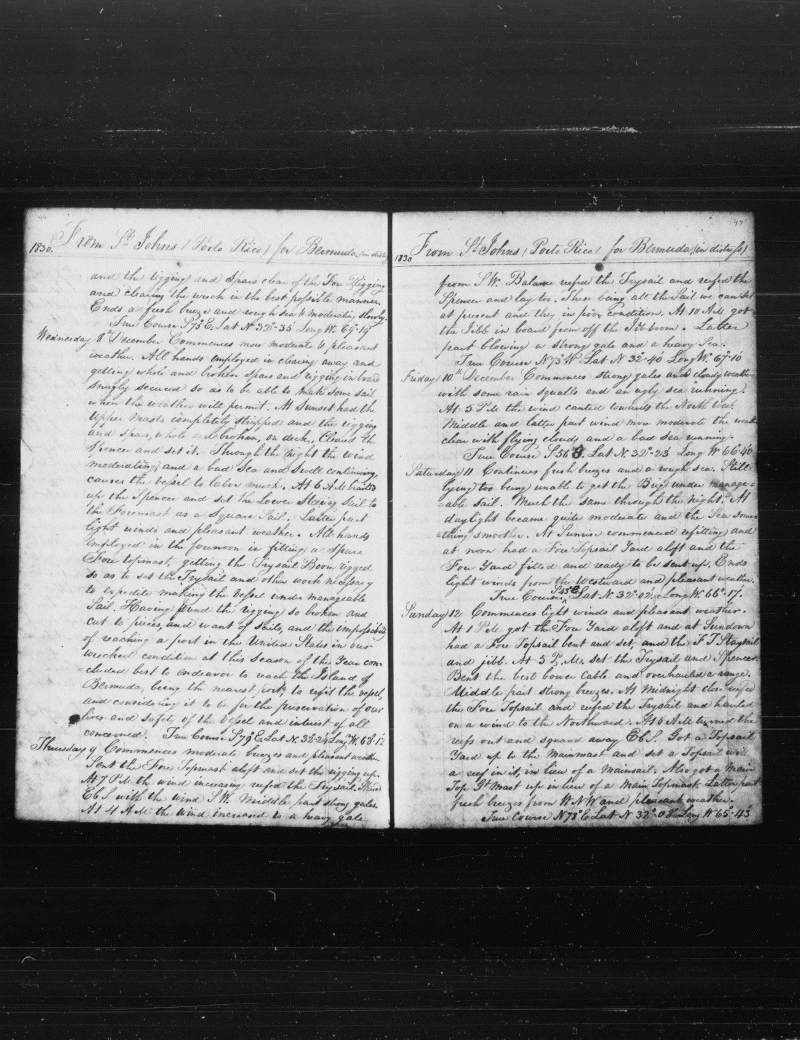 1830. From St. Johns (Porto Rico) for Bermuda (in distress)
and the rigging and spars clear of the Fore Rigging
and clearing the wreck in the best possible manner
Ends a fresh breeze and rough sea & moderating slowly.
True Course S 75° E, Lat N. 32°-35 Long W. 69°-19
Wednesday 8th December Commences more moderate & pleasant
weather. All hands employed in clearing away and
getting whole and broken spars and rigging in board
snugly secured so as to be able to make some sail
when the weather will permit. At Sunset had the
upper masts completely stripped and the rigging
and spars, whole and broken, on deck, Cleared the
Spencer and set it. Through the night the wind
moderating and a bad Sea and Swell continuing
causes the vessel to labor much. At 6 A.M. hauled
up the Spencer and set the Lower Steering Sail to
the Foremast as a Square Sail. Latter part
light winds and pleasant weather. All hands
employed in the forenoon in fitting a spare
Fore topmast, getting the Trysail Boom rigged
so as to set the Trysail and other work necessary
to expedite making the Vessel under manageable
Sail. Having and the rigging so broken and
cut to pieces, and want of Sails, and the impossibility
of reaching a port in the United States in our
wrecked condition at this season of the Year con-
=cluded best to endeavor to reach the Island of
Bermuda, being the nearest port, to refit the vessel,
and considering it to be for the preservation of our
lives and safety of the vessel and interest of all
concerned. True Course S 79° E, Lat N. 32°-24 Long W. 68°-12
Thursday 9 Commences moderate breezes and pleasant weather
Sent the Fore Topmast aloft and set the rigging up.
At 7 P.M. the wind increasing reefed the Trysail,
EbS with the wind SW. Middle part strong gales
At 4 A.M. the wind increased to a heavy gale
47
1830 From St. Johns (Porto Rico) for Bermuda (in distress)
from S.W. Balance reefed the Trysail and reefed the
Spencer and lay too. These being all the Sail we can set
at present and they in poor condition. At 10 A.M. got
the Jibb in board from off the Jib boom. Latter
part blowing a strong gale and a heavy Sea.
True Course N 75° W Lat N 32°-40 Long W. 67°-10
Friday 10th December Commences strong gales and cloudy weather
with some rain squalls and an ugly sea running.
At 5 P.M. the wind canted towards the North West.
Middle and latter part wind more moderate the weather
clear with flying clouds and a bad sea running.
True Course S 56° E. Lat N. 32°-23 Long W 66°-40
Saturday 11 Continues fresh breezes and a rough sea. Still
lying too being unable to get the Brig under manage=
=able sail. Much the same through the night. At
daylight became quite moderate and the Sea some=
=thing smoother. At Sunrise commenced refitting and
at noon had a Fore Topsail Yard aloft and the
Fore Yard fitted and ready to be sent up. Ends
light winds from the Westward and pleasant weather.
True Course S 45° E, Lat N. 32°-02, Long W. 66°-17.
Sunday 12 Commences light winds and pleasant weather.
At 1 P.M. got the Fore Yard aloft and at Sundown
had a Fore Topsail bent and set, and the F. T. Staysail
and jibb. At 5 P.M. set the Trysail and Spencer.
Bent the best bower Cable and overhauled a range.
Middle part strong breezes. At Midnight close reefed
the Fore Topsail and reefed the Trysail and hauled
on a wind to the Northward. At 6 A.M. turned the
reefs out and squared away EbS. Got a Topsail
Yard up to the Mainmast and set a Topsail with
a reef in it, in lieu of a Mainsail. Also got a Main
Top Gt Mast up in lieu of a Main Topmast. Latter part
fresh breezes from WNW and pleasant weather.
True Course N 78° E, Lat N 32°-08 Long W 65°-43